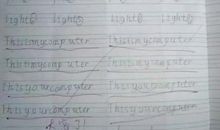 light light light light
This is my computer This is my computer
This is my computer This is my computer
This is your computer This is your computer
This is your computer This is your computer